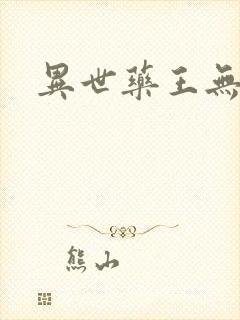 異世藥王無
熊山